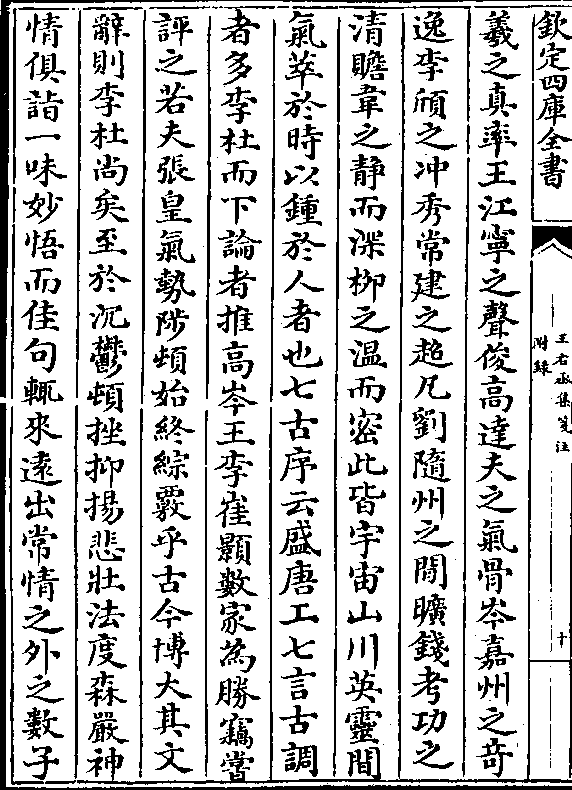 欽定四庫全書
王右丞集箋注
附錄
十
羲之真率王江寧之聲俊高達夫之氣骨岑嘉州之奇
逸李頎之冲秀常建之超凡劉隨州之閒曠錢考功之
清贍韋之静而深柳之温而密此皆宇宙山川英靈間
氣萃於時以鍾於人者也七古序云盛唐工七言古調
者多李杜而下論者推高岑王李崔顥數家為勝竊嘗
評之若夫張皇氣勢陟頓始終綜覈乎古今博大其文
辭則李杜尚矣至於沉鬱頓挫抑揚悲壯法度森嚴神
情俱詣一味妙悟而佳句輒來逺出常情之外之數子